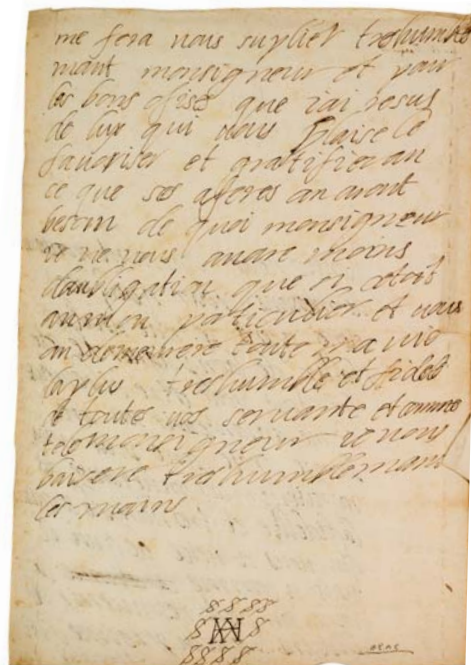 me fera vous suplier treshumble
mant monsigneur et pour
les bons ofises que iai resus
de luy qui vous plaise le
favoriser et gratifier an
ce que ses aferes an aront
besoin de quoi monsigneur
ie ne vous aurare moins
daubligation que si cetoit
an mon particulier et vous
an demeurere toute ma vie
la plus treshumble et fidele
de toute vos servante et comme
telle monsigneur ie vous
baisere treshumblemant
les mains